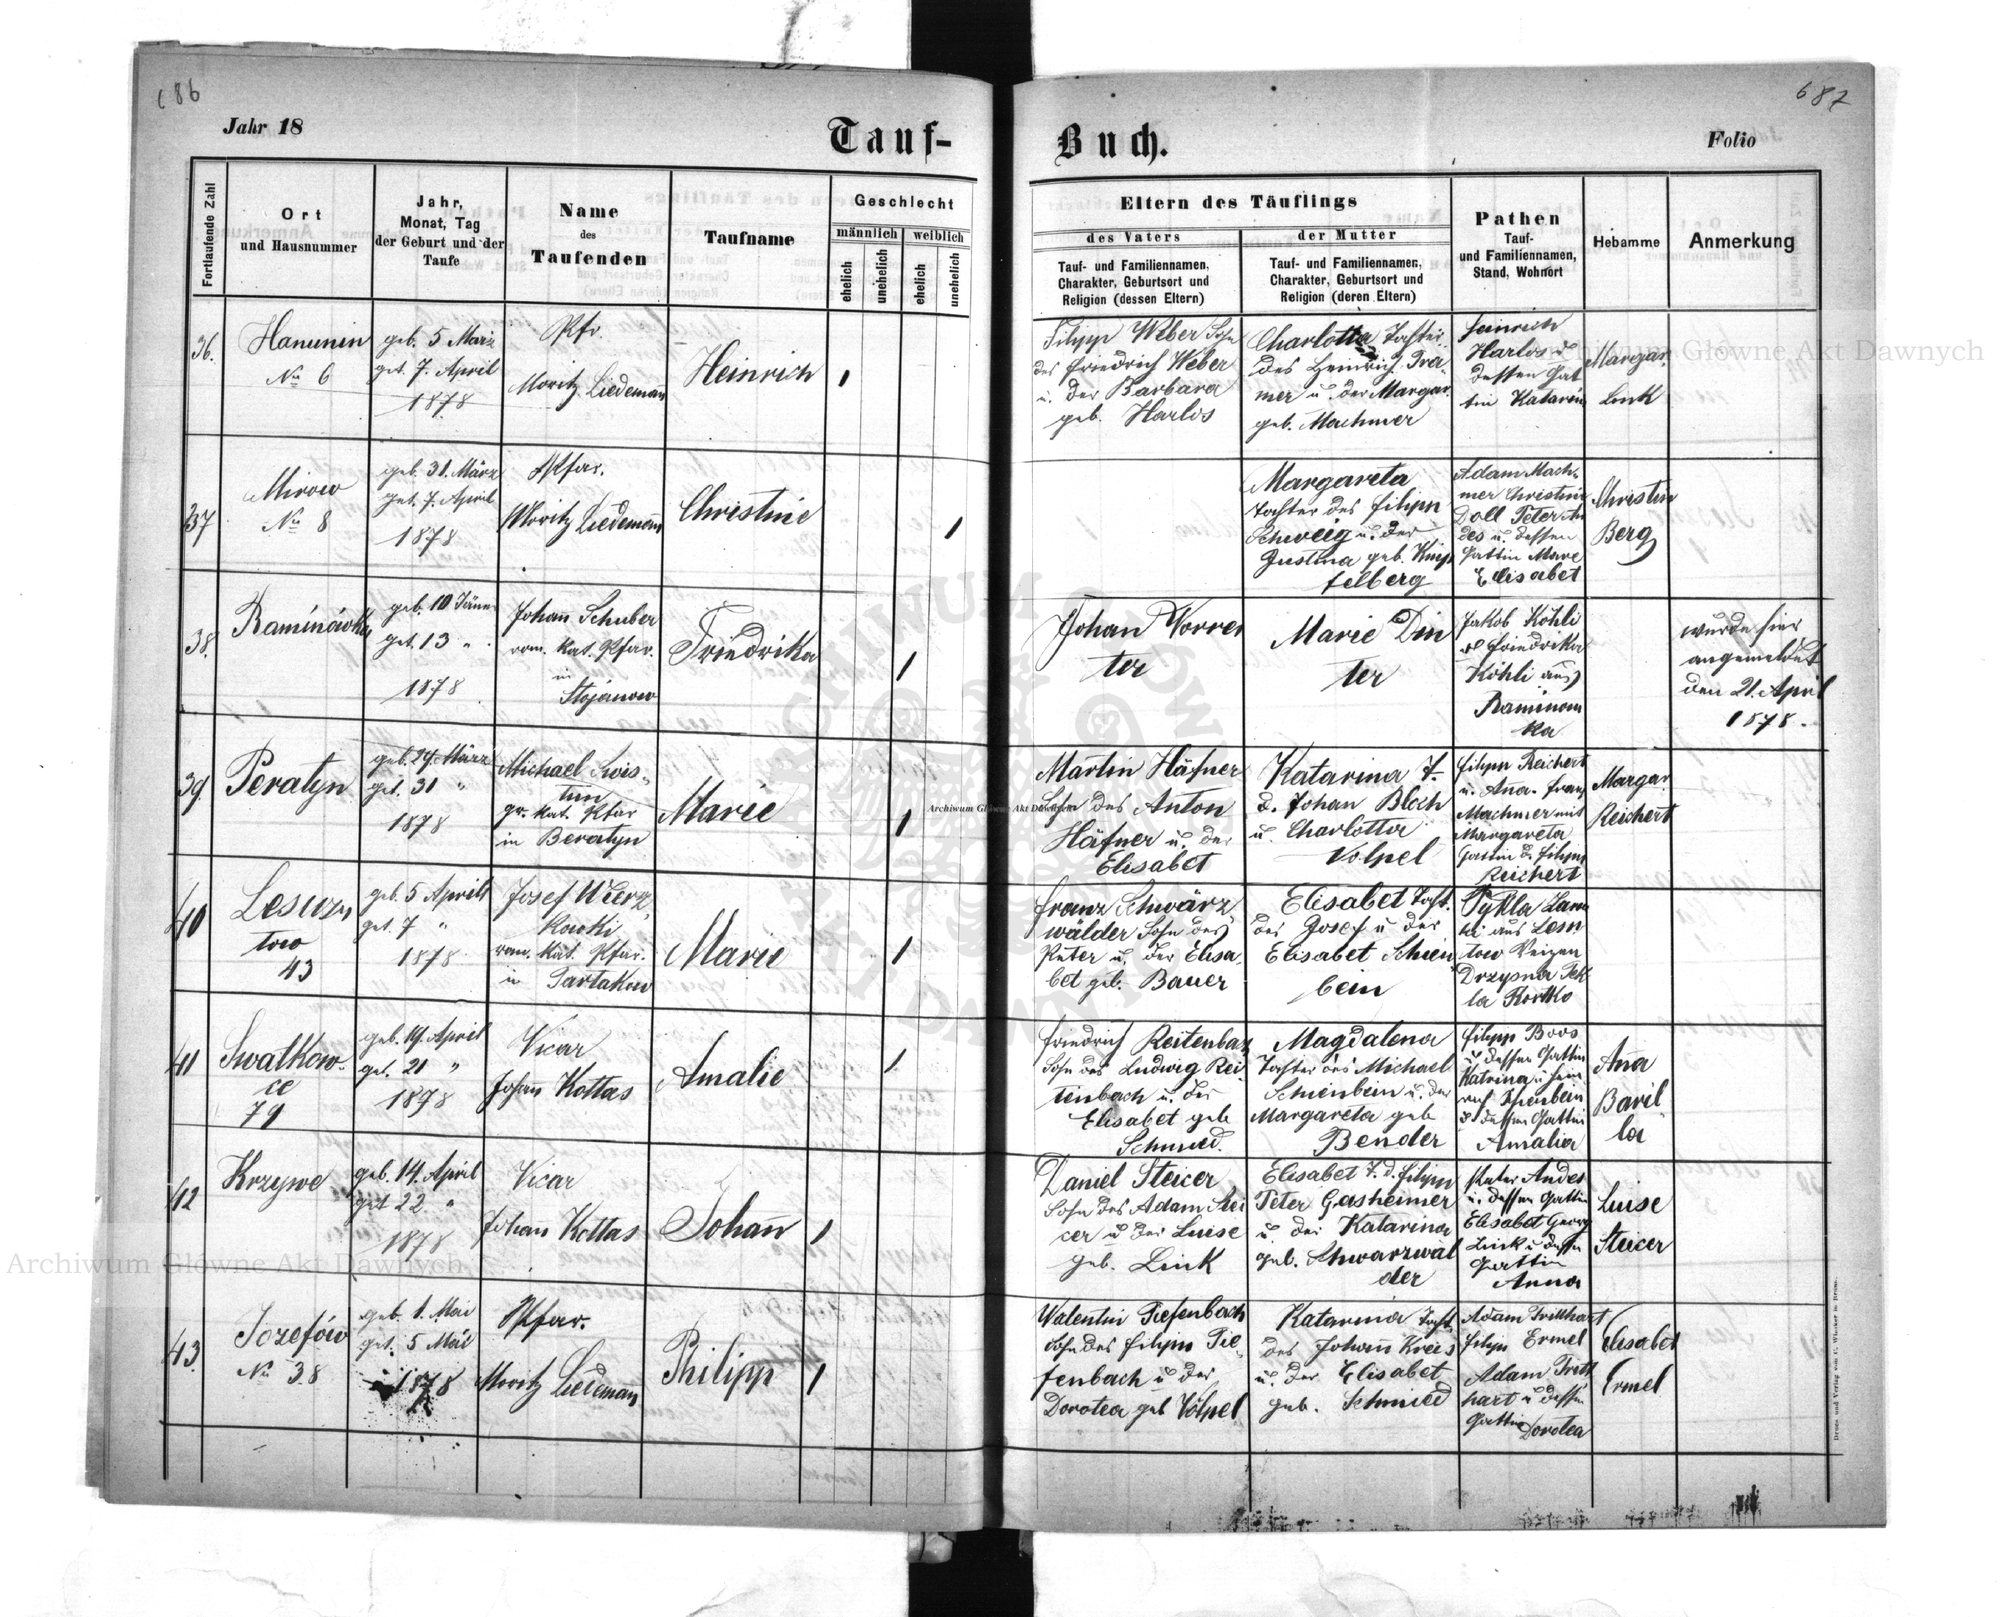 686
687
Jahr 18
Tauf-
Buch.
Folio
Fortlaufende Zahl
Ort
und Hausnummer
Jahr,
Monat, Tag
der Geburt und der
Taufe
Name
des
Taufenden
Taufname
Geschlecht
männlich
weiblich
ehelich
unehelich
ehelich
unehelich
Eltern des Täuflings
des Vaters
Tauf- und Familiennamen,
Charakter, Geburtsort und
Religion (dessen Eltern)
der Mutter
Tauf- und Familiennamen,
Charakter, Geburtsort und
Religion (deren Eltern)
Pathen
Tauf-
und Familiennamen,
Stand, Wohnort
Hebamme
Anmerkung
36.
Hanunin
No 6
geb. 5 März
get. 7. April
1878
Pfr.
Moritz Liedemann
Heinrich
1
Filipp Weber Sohn
des Friedrich Weber
u. der Barbara
geb. Harlos
Charlotta Tochter
des Heinrich Kra-
mer u. der Margar.
geb. Machmer
Heinrich
Harlos u
dessen Gat
tin Katarina
Margar.
Link
37
Mirow
No 8
geb. 31. März
get. 7. April
1878
Pfar.
Moritz Liedemann
Christine
1
Margareta
Tochter des Filipp
Schweig u. der
Justina geb. Knip
felberg
Adam Mach-
mer Christine
Doll Peter An
des u. dessen
Gattin Marie
Elisabet
Christin
Berg
38.
Raminówka
geb. 10 Jäner
get. 13 "
1878
Johan̄ Schuber
rom. kat. Pfar.
in
Stojanow
Friedrika
1
Johan Worren
ter
Marie Din
ter
Jakob Köhli
u Friedrika
Köhli aus
Raminow
ka
wurde hier
angemeldet
den 21. April
1878.
39.
Peratyn
geb. 29. März
get. 31 "
1878
Michael Swis-
tun
gr. kat. Pfar
in Beratyn
Marie
1
Martin Häfner
Sohn des Anton
Häfner u. der
Elisabet
Katarina T.
d. Johan Bloch
u. Charlotta
Volpel
Filipp Reichert
u. Ana. Franz
Machmer mit
Margareta
Gattin d. Filipp
Reichert
Margar.
Reichert
40
Leswzn
tow
43
geb. 5 April
get. 7 "
1878
Josef Wierz
kowki
rom. kat. Pfar.
in Tartakow
Marie
1
Franz Schwärz
wälder Sohn des
Peter u. der Elisa-
bet geb. Bauer
Elisabet Tocht.
des Josef u der
Elisabet Schien
bein
aus Lesn
tow
Drzysna Tek
la Kostko
41
Swatkow-
ce
79
geb. 19. April
get. 21 "
1878
Vicar
Johan Kottas
Amalie
1
Friedrich Reitenbax
Sohn des Ludwig Rei-
tenbach u. der
Elisabet geb
Schmied.
Magdalena
Tochter des Michael
Schienbein u. der
Margareta geb
Bender
Filipp Boos
u dessen Gattin
Katrina u Hein-
rich Schienbein
u dessen Gattin
Amalia
Ana
Baril-
la
42
Krzywe
geb. 14. April
get 22 "
1878
Vicar
Johan Kottas
Johan̄
1
Daniel Steicer
Sohn des Adam Stei
cer u der Luise
geb. Link
Elisabet T. d. Filipp
Peter Gasheimer
u. der Katarina
geb. Schwarzwäl
der
Peter Andes
u. dessen Gattin
Elisabet Georg
Link u dessen
Gattin
Anna
Luise
Steicer
43.
Jozefów
No 38
geb. 1. Mai
get. 5 Mai
1878
Pfar.
Moritz Liedeman̄
Philipp
1
Walentin Tiefenbach
Sohn des Filipp Tie-
fenbach u der
Dorotea geb Völpel
Katarina Tocht.
des Johan̄ Kreis
u. der Elisabet
geb. Schmied
Adam Tritthart
Filipp Ermel
Adam Tritt
hart u dessen
Gattin Dorotea
Elisabet
Ermel
Archiwum Główne Akt Dawnych
Archiwum Główne Akt Dawnych
Archiwum Główne Akt Dawnych